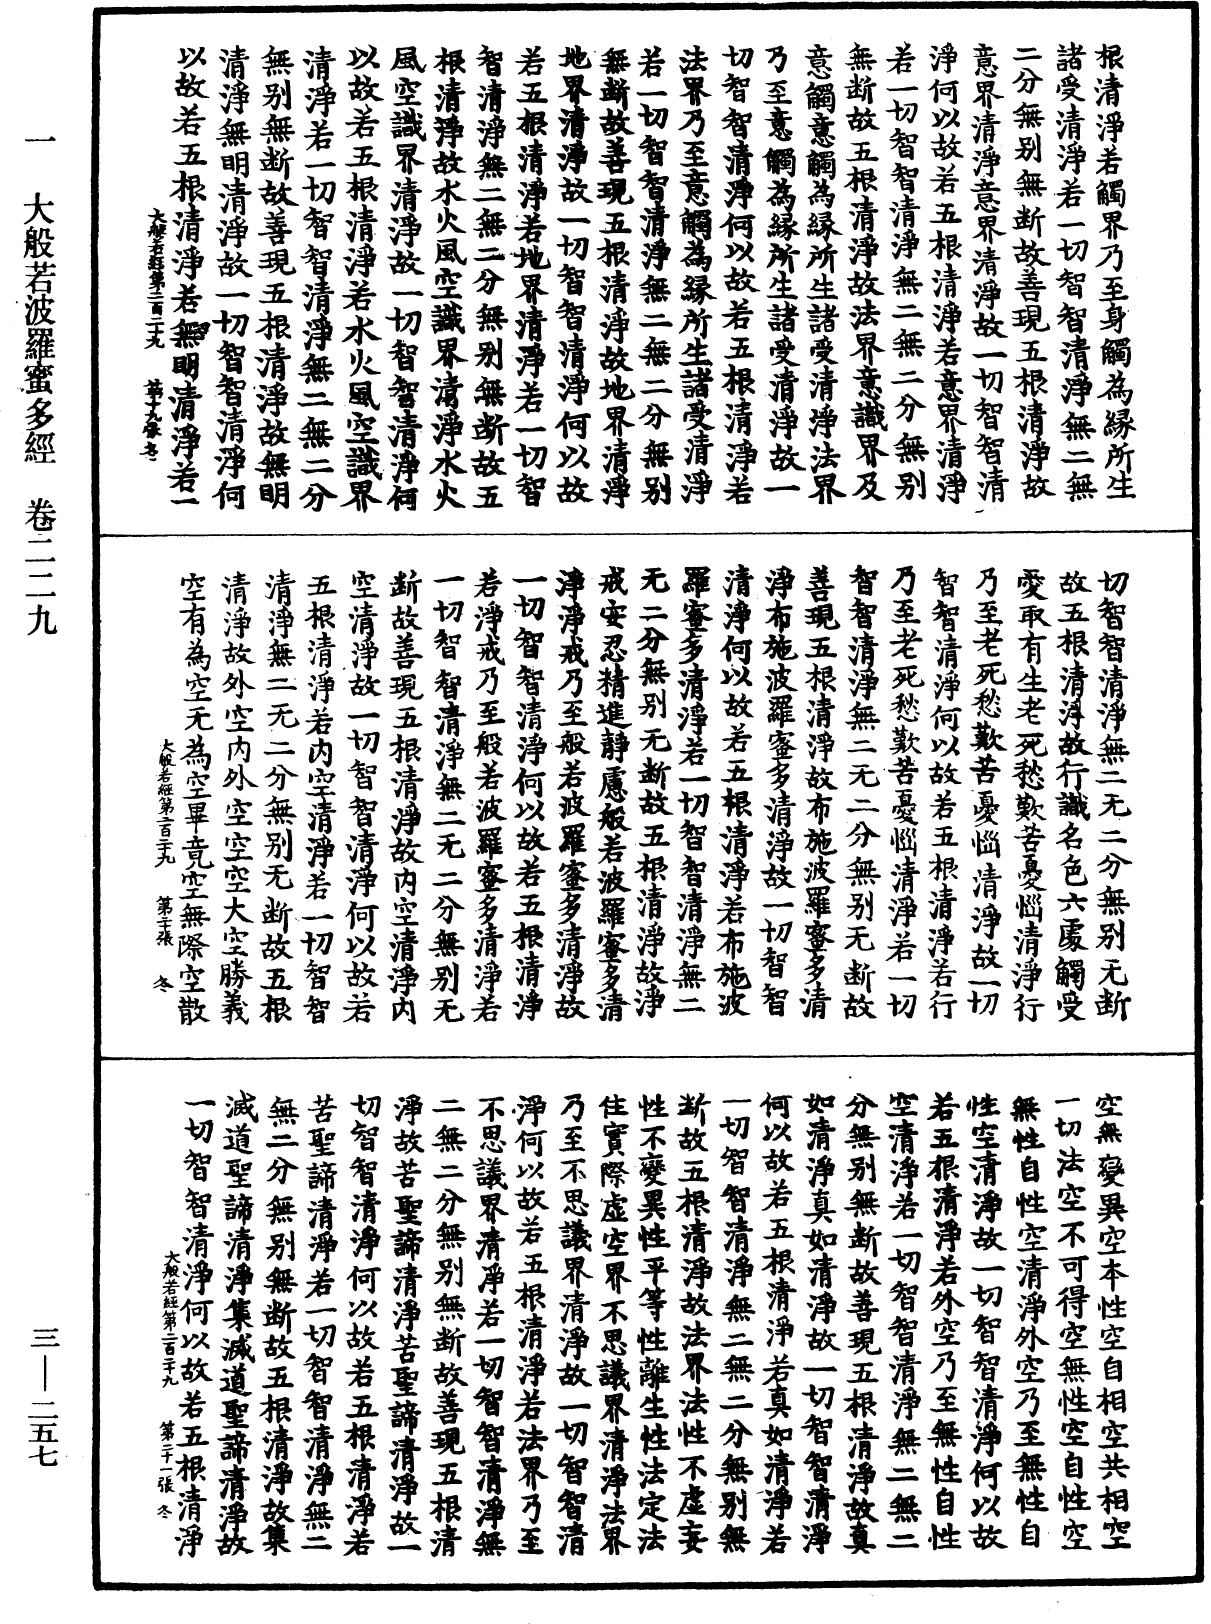 根清淨若觸界乃至身觸為緣所生
諸受清淨若一切智智清淨無二無
二分無別無斷故善現五根清淨故
意界清淨意界清淨故一切智智清
淨何以故若五根清淨若意界清淨
若一切智智清淨無二無二分無別
無斷故五根清淨故法界意識界及
意觸意觸為緣所生諸受清淨法界
乃至意觸為緣所生諸受清淨故一
切智智清淨何以故若五根清淨若
法界乃至意觸為緣所生諸受清淨
若一切智智清淨無二無二分無別
無斷故善現五根清淨故地界清淨
地界清淨故一切智智清淨何以故
若五根清淨若地界清淨若一切智
智清淨無二無二分無別無斷故五
根清淨故水火風空識界清淨水火
風空識界清淨故一切智智清淨何
以故若五根清淨若水火風空識界
清淨若一切智智清淨無二無二分
無別無斷故善現五根清淨故無明
清淨無明清淨故一切智智清淨何
以故若五根清淨若無明清淨若一
大般若經第二百二十九 第十九張 冬
切智智清淨無二无二分無別无斷
故五根清淨故行識名色六處觸受
愛取有生老死愁歎苦憂惱清淨行
乃至老死愁歎苦憂惱清淨故一切
智智清淨何以故若五根清淨若行
乃至老死愁歎苦憂惱清淨若一切
智智清淨無二无二分無別无斷故
善現五根清淨故布施波羅蜜多清
淨布施波羅蜜多清淨故一切智智
清淨何以故若五根清淨若布施波
羅蜜多清淨若一切智智清淨無二
无二分無別无斷故五根清淨故淨
戒安忍精進靜慮般若波羅蜜多清
淨淨戒乃至般若波羅蜜多清淨故
一切智智清淨何以故若五根清淨
若淨戒乃至般若波羅蜜多清淨若
一切智智清淨無二无二分無別无
斷故善現五根清淨故內空清淨內
空清淨故一切智智清淨何以故若
五根清淨若內空清淨若一切智智
清淨無二无二分無別无斷故五根
清淨故外空內外空空空大空勝義
空有為空无為空畢竟空無際空散
大般若經第二百二十九 第二十張 冬
空無變異空本性空自相空共相空
一切法空不可得空無性空自性空
無性自性空清淨外空乃至無性自
性空清淨故一切智智清淨何以故
若五根清淨若外空乃至無性自性
空清淨若一切智智清淨無二無二
分無別無斷故善現五根清淨故真
如清淨真如清淨故一切智智清淨
何以故若五根清淨若真如清淨若
一切智智清淨無二無二分無別無
斷故五根清淨故法界法性不虛妄
性不變異性平等性離生性法定法
住實際虛空界不思議界清淨法界
乃至不思議界清淨故一切智智清
淨何以故若五根清淨若法界乃至
不思議界清淨若一切智智清淨無
二無二分無別無斷故善現五根清
淨故苦聖諦清淨苦聖諦清淨故一
切智智清淨何以故若五根清淨若
苦聖諦清淨若一切智智清淨無二
無二分無別無斷故五根清淨故集
滅道聖諦清淨集滅道聖諦清淨故
一切智智清淨何以故若五根清淨
大般若經第二百二十九 第二十一張 冬
一 大般若波羅蜜多經 卷二二九
三—二五七